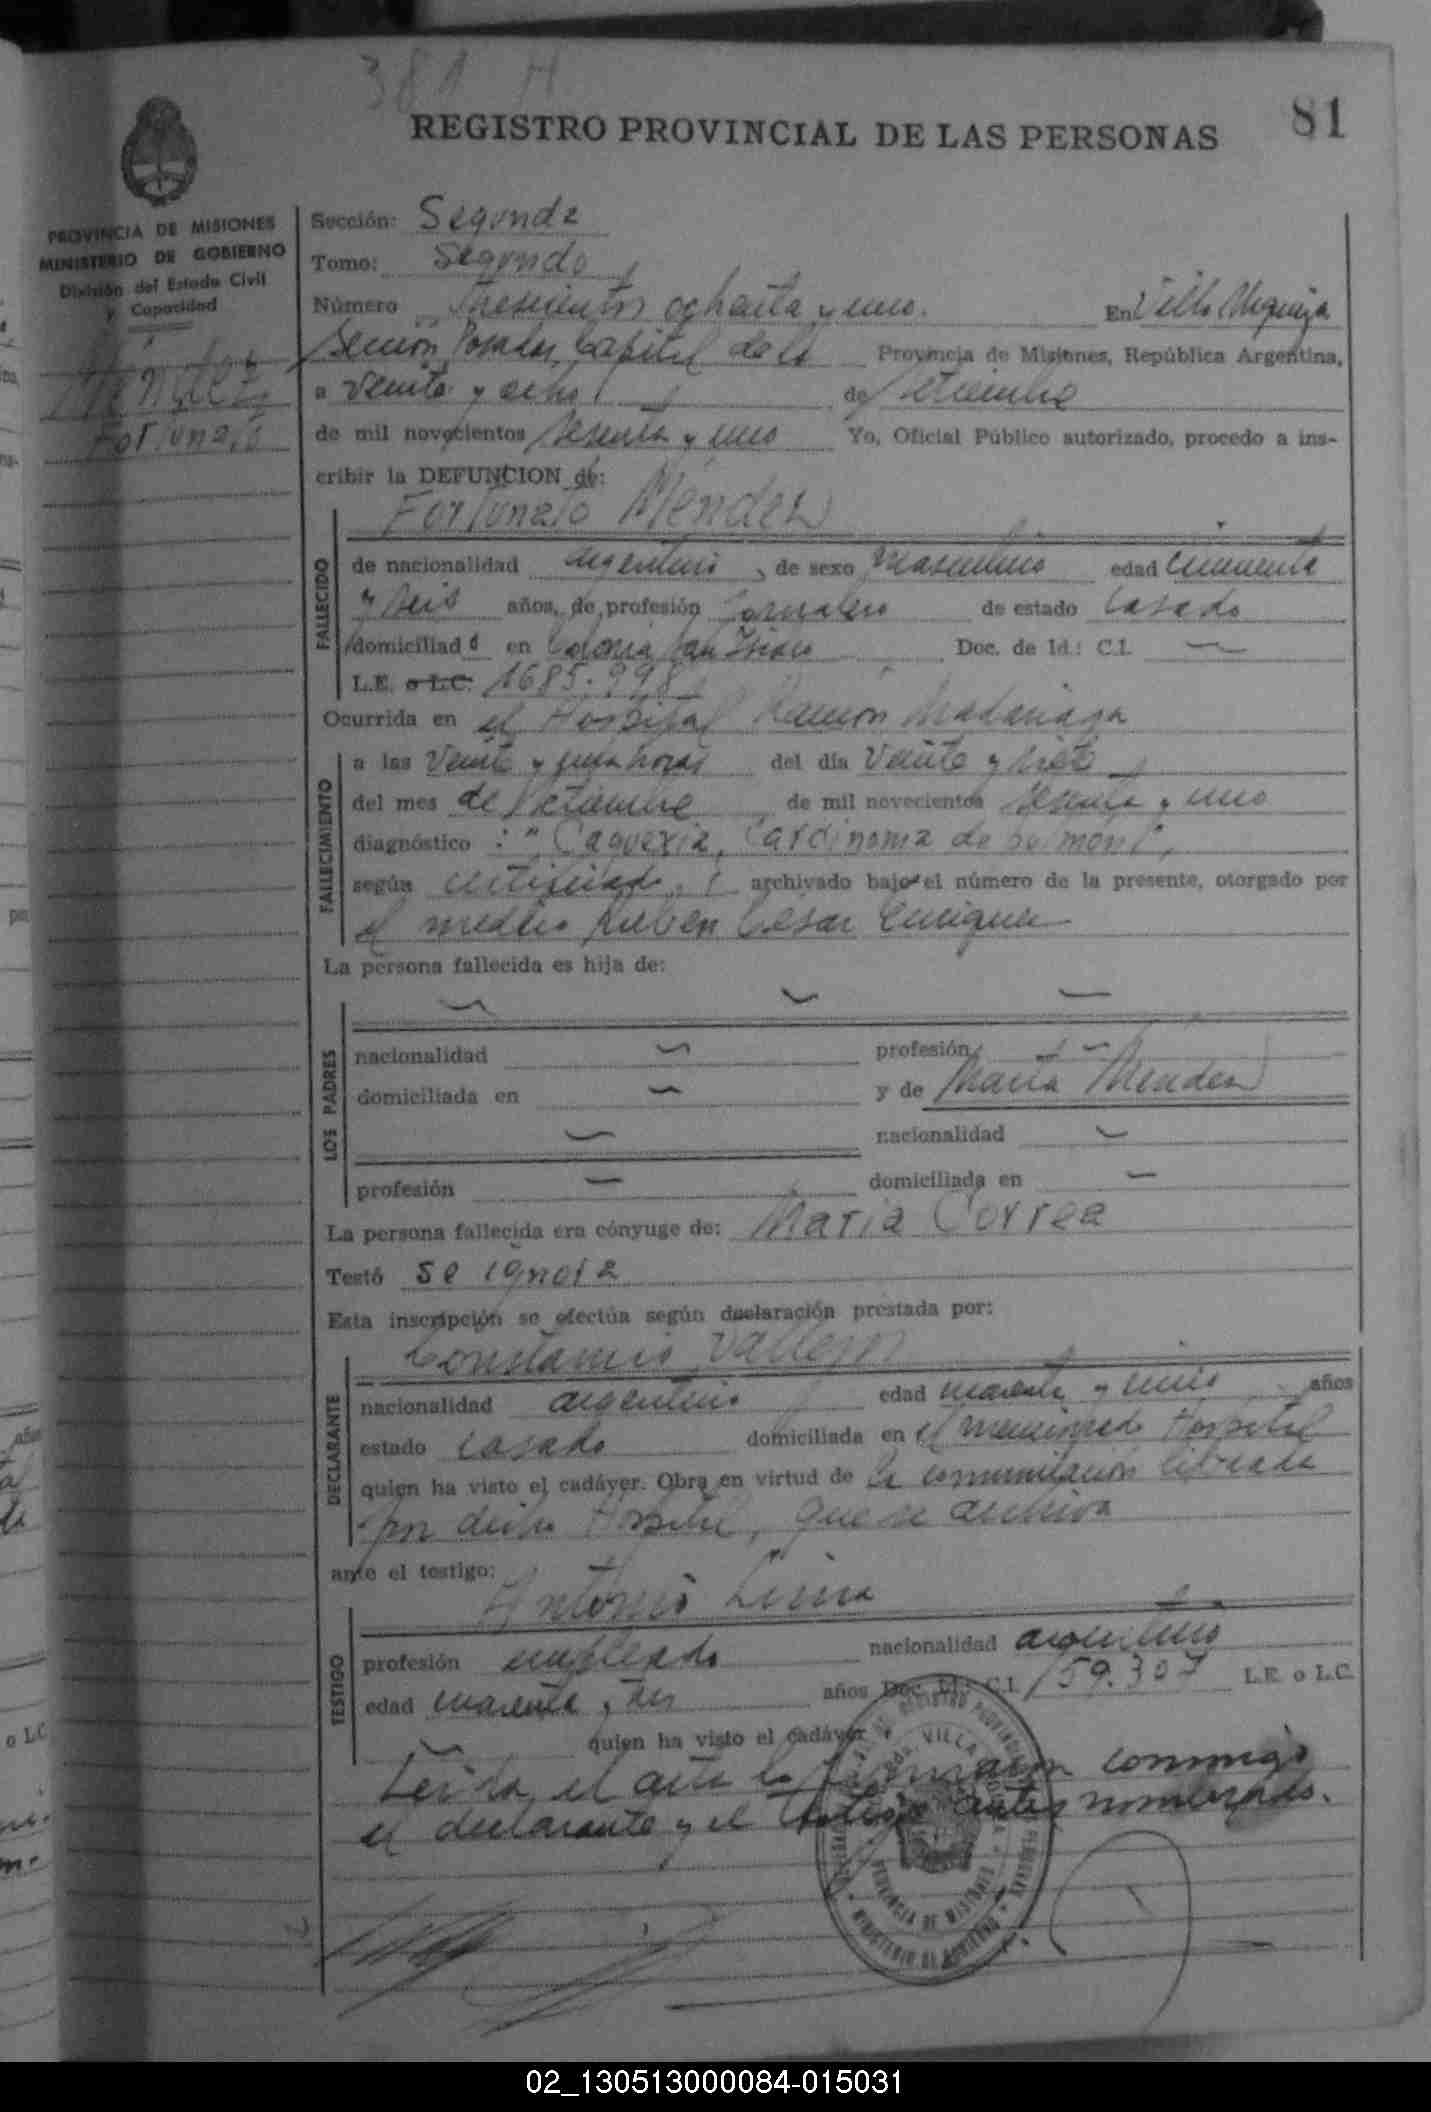 381
81
REGISTRO PROVINCIAL DE LAS PERSONAS
PROVINCIA DE MISIONES
MINISTERIO DE GOBIERNO
División del Estado Civil
y Capacidad
Méndez
Fortunato
Sección: Segunda
Tomo: Segundo
Número Trescientos ochenta y uno. En Villa Urquiza
Sección Posadas Capital de la Provincia de Misiones, República Argentina,
a veinte y ocho de Setiembre
de mil novecientos sesenta y uno Yo, Oficial Público autorizado, procedo a ins-
cribir la DEFUNCION de:
Fortunato Méndez
FALLECIDO
de nacionalidad argentino, de sexo masculino edad cincuenta
y seis años, de profesión Jornalero de estado casado
domiciliado en Colonia San Isidro Doc. de Id.: C.I.
L.E. o L.C. 1685.998
Ocurrida en el Hospital Ramón Madariaga
FALLECIMIENTO
a las veinte y una horas del día veinte y siete
del mes de Setiembre de mil novecientos sesenta y uno
diagnóstico : "Caquexia, Carcinoma de pulmón",
según certificado, archivado bajo el número de la presente, otorgado por
el médico Rubén César Enriquez
La persona fallecida es hija de:
LOS PADRES
nacionalidad profesión
domiciliada en y de María Méndez
nacionalidad
profesión domiciliada en
La persona fallecida era cónyuge de: María Correa
Testó se ignora
Esta inscripción se efectúa según declaración prestada por:
Constancio Vallejos
DECLARANTE
nacionalidad argentino edad cuarenta y años
estado casado domiciliada en el mencionado Hospital
quien ha visto el cadáver. Obra en virtud de la comunicación librada
por dicho Hospital, que se archiva
ante el testigo:
Antonio
TESTIGO
profesión empleado nacionalidad argentino
edad cuarenta y tres años Doc. Id.: C.I. 159.307 L.E. o L.C.
quien ha visto el cadáver
Leída el acta la firman conmigo
el declarante y el testigo antes nombrados.
PROVINCIA DE MISIONES
MINISTERIO DE GOBIERNO
02_130513000084-015031